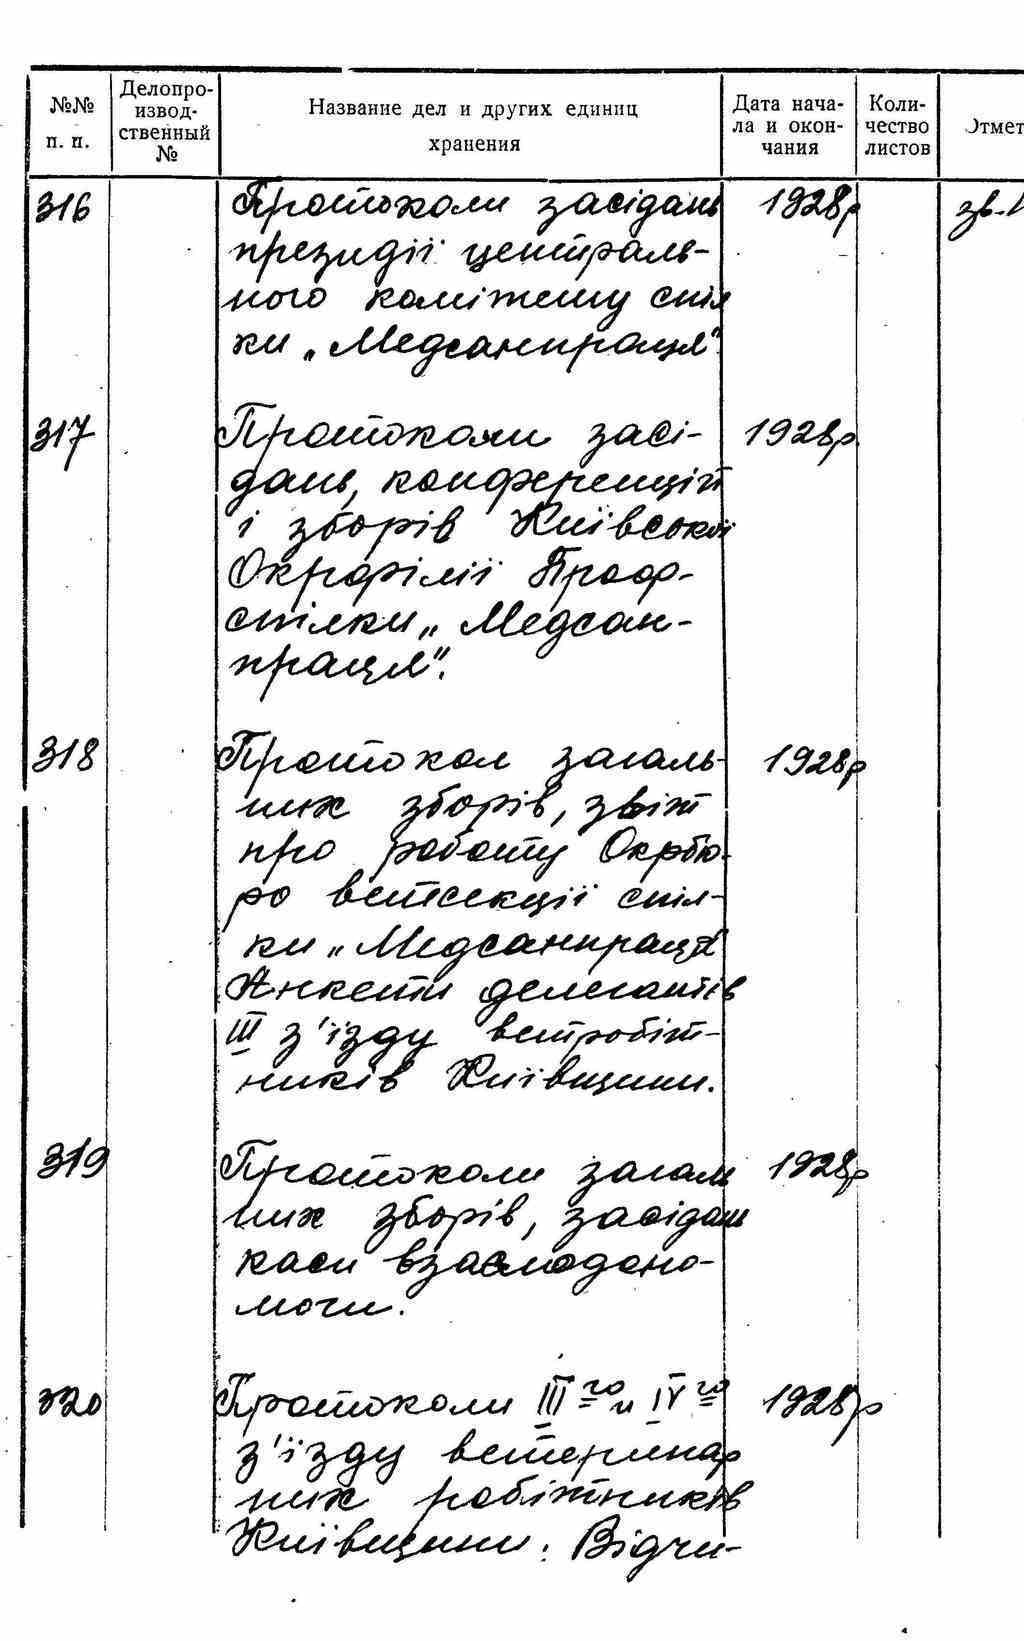 №№ п. п.
Делопро-
извод-
ственный
№
Название дел и других единиц
хранения
Дата нача-
ла и окон-
чания
Коли-
чество
листов
Отмет
316 Протоколи засідань 1928р зв.
президії централь-
ного комітету спіл
ки „Медсанпраця"
317 Протоколи засі- 1928р.
дань, конференцій
і зборів Київської
Окрфілії Проф-
спілки „Медсан-
праця".
318 Протокол загаль- 1928р
них зборів, звіт
про роботу Окрбю-
ро ветсекції спіл-
ки „Медсанпраця"
Анкети делегатів
III з'їзду ветробіт-
ників Київщини.
319 Протоколи загаль 1928р
них зборів, засідань
каси взаємодопо-
моги.
320 Протоколи III го и IV го 1928р
з'їзду ветеринар
них робітників
Київщини. Відчи-